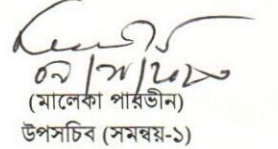 (মালেকা পারভীন)
উপসচিব (সমন্বয়-১)